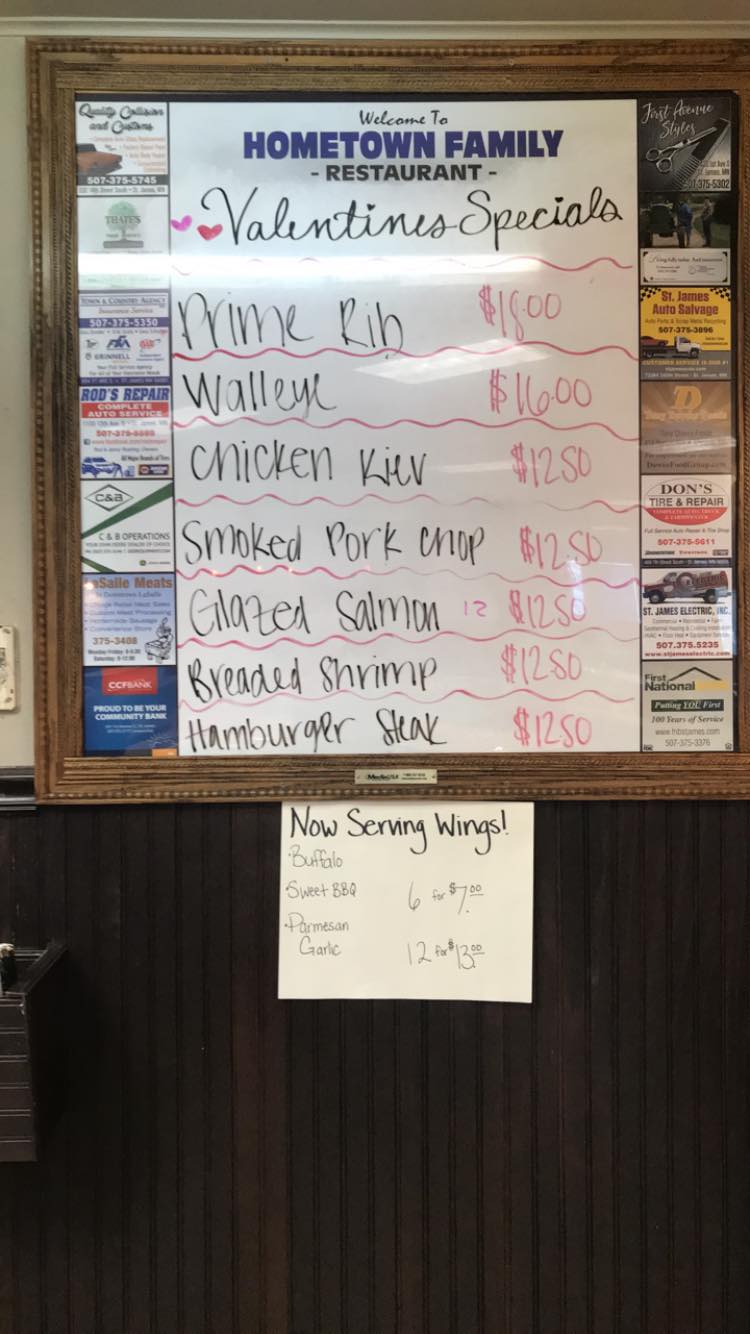 Welcome To
HOMETOWN FAMILY
- RESTAURANT -
Valentines Specials
Prime Rib $18.00
Walleye $16.00
Chicken Kiev $12.50
Smoked Pork Chop $12.50
Glazed Salmon 12 $12.50
Breaded Shrimp $12.50
Hamburger Steak $12.50
Quality Collision
and Customs
507-375-5745
THATE'S
TOWN & COUNTRY AGENCY
Insurance Service
507-375-5350
GRINNELL
ROD'S REPAIR
COMPLETE
AUTO SERVICE
All Major Brands of Tires
C&B
C & B OPERATIONS
LaSalle Meats
in Downtown LaSalle
Convenience Store
375-3408
CCFBANK
PROUD TO BE YOUR
COMMUNITY BANK
First Avenue
Styles
St. James
Auto Salvage
Auto Parts & Scrap Metal Recycling
507-375-3896
D
DON'S
TIRE & REPAIR
Full Service Auto Repair & Tire Shop
507-375-5611
ST. JAMES ELECTRIC, INC.
507.375.5235
www.stjameselectric.com
First
National
Putting YOU First
100 Years of Service
www.fnbstjames.com
507-375-3376
MediaUSA
Now Serving Wings!
·Buffalo
·Sweet BBQ 6 for $7.00
·Parmesan
Garlic 12 for $13.00